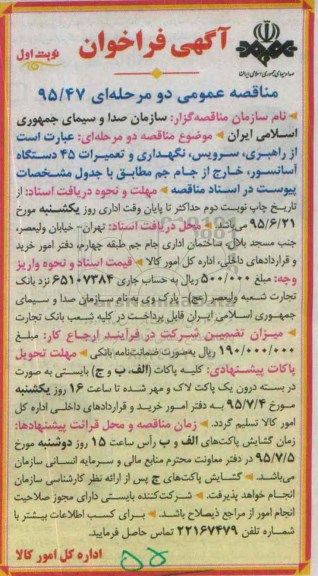 صدا و سیمای جمهوری اسلامی ایران
آگهی فراخوان
نوبت اول
مناقصه عمومی دو مرحله‌ای ۹۵/۴۷
نام سازمان مناقصه‌گزار: سازمان صدا و سیمای جمهوری
اسلامی ایران موضوع مناقصه دو مرحله‌ای: عبارت است
از راهبری، سرویس، نگهداری و تعمیرات ۴۵ دستگاه
آسانسور، خارج از جام جم مطابق با جدول مشخصات
پیوست در اسناد مناقصه مهلت و نحوه دریافت اسناد: از
تاریخ چاپ نوبت دوم حداکثر تا پایان وقت اداری روز یکشنبه مورخ
۹۵/۶/۲۱ می‌باشد محل دریافت اسناد: تهران- خیابان ولیعصر،
جنب مسجد بلال، ساختمان اداری جام جم طبقه چهارم، دفتر امور خرید
و قراردادهای داخلی، اداره کل امور کالا قیمت اسناد و نحوه واریز
وجه: مبلغ ۵۰۰/۰۰۰ ریال به حساب جاری ۶۵۱۰۷۳۸۴ نزد بانک
تجارت شعبه ولیعصر (عج)- پارک وی به نام سازمان صدا و سیمای
جمهوری اسلامی ایران قابل پرداخت در کلیه شعب بانک تجارت
میزان تضمین شرکت در فرایند ارجاع کار: مبلغ
۱۹۰/۰۰۰/۰۰۰ ریال به‌صورت ضمانت‌نامه بانکی مهلت تحویل
پاکات پیشنهادی: کلیه پاکات (الف، ب و ج) بایستی به صورت
در بسته درون یک پاکت لاک و مهر شده تا ساعت ۱۶ روز یکشنبه
مورخ ۹۵/۷/۴ به دفتر امور خرید و قراردادهای داخلی اداره کل
امور کالا تسلیم گردد. زمان مناقصه و محل قرائت پیشنهادها:
زمان گشایش پاکت‌های الف و ب رأس ساعت ۱۵ روز دوشنبه مورخ
۹۵/۷/۵ در دفتر معاونت محترم منابع مالی و سرمایه انسانی سازمان
می‌باشد. گشایش پاکت‌های ج پس از ارائه نظر کارشناسی سازمان
انجام خواهد پذیرفت. شرکت‌کننده بایستی دارای مجوز صلاحیت
انجام امور از مراجع ذیصلاح باشد. برای کسب اطلاعات بیشتر با
شماره تلفن ۲۲۱۶۷۴۷۹ تماس حاصل فرمایید.
اداره کل امور کالا